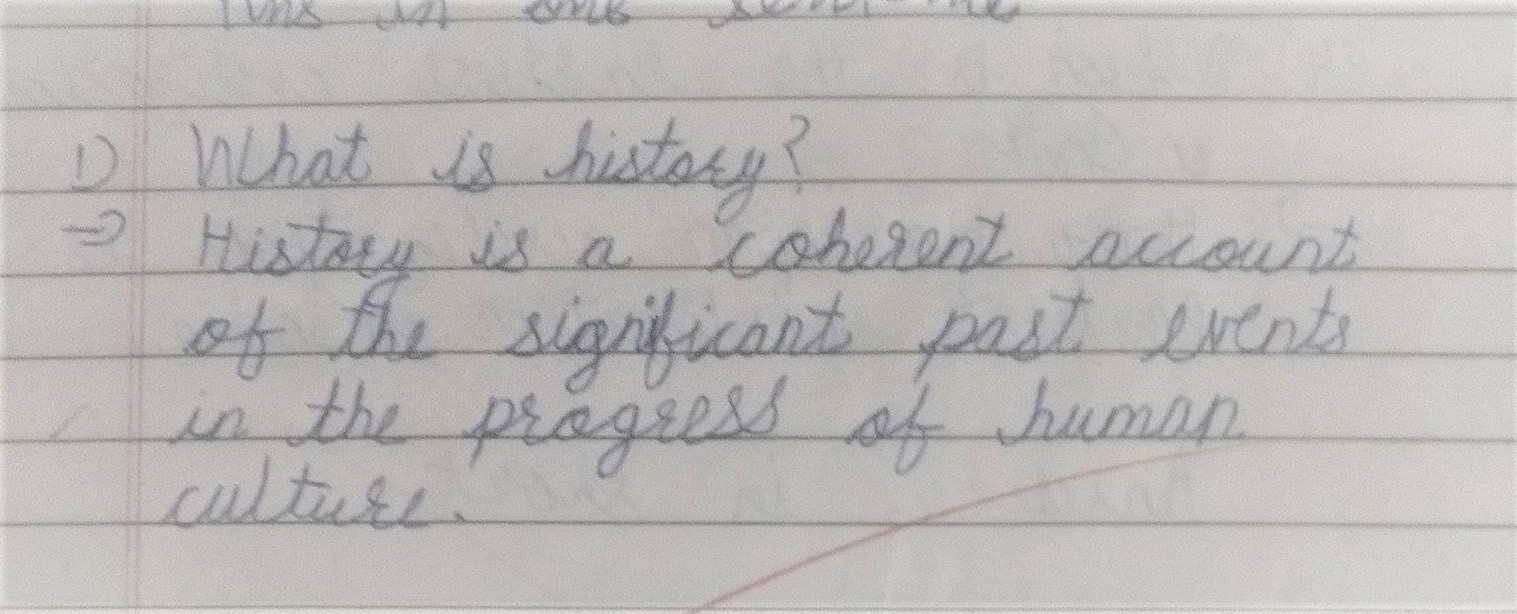 in one
1) What is history?
⇒ History is a coherent account
of the significant past events
in the progress of human
culture.